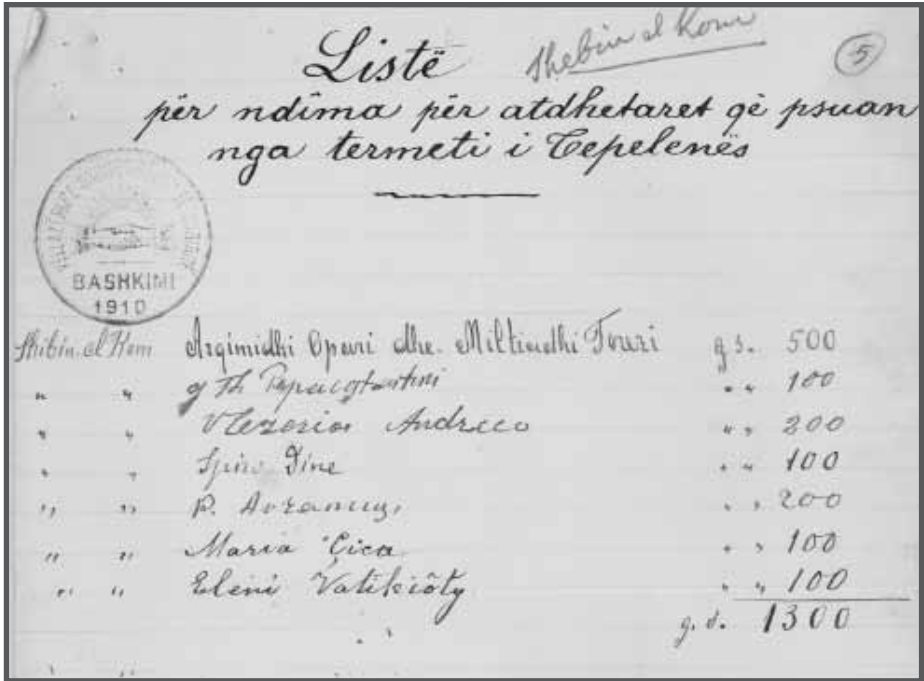 Listë
Shebin el Kom
5
për ndima për atdhetaret që psuan
nga termeti i Tepelenës
BASHKIMI
1910
Shibin el Kom Argimidhi Opari dhe Miltiadhi Foruzi g s. 500
" " " " 100
" " Vlezoria Andreco " " 200
" " Spiro Dine " " 100
" " P. Avramuçi " " 200
" " Maria Çica " " 100
" " Eleni Vatikiôty " " 100
g. d. 1300